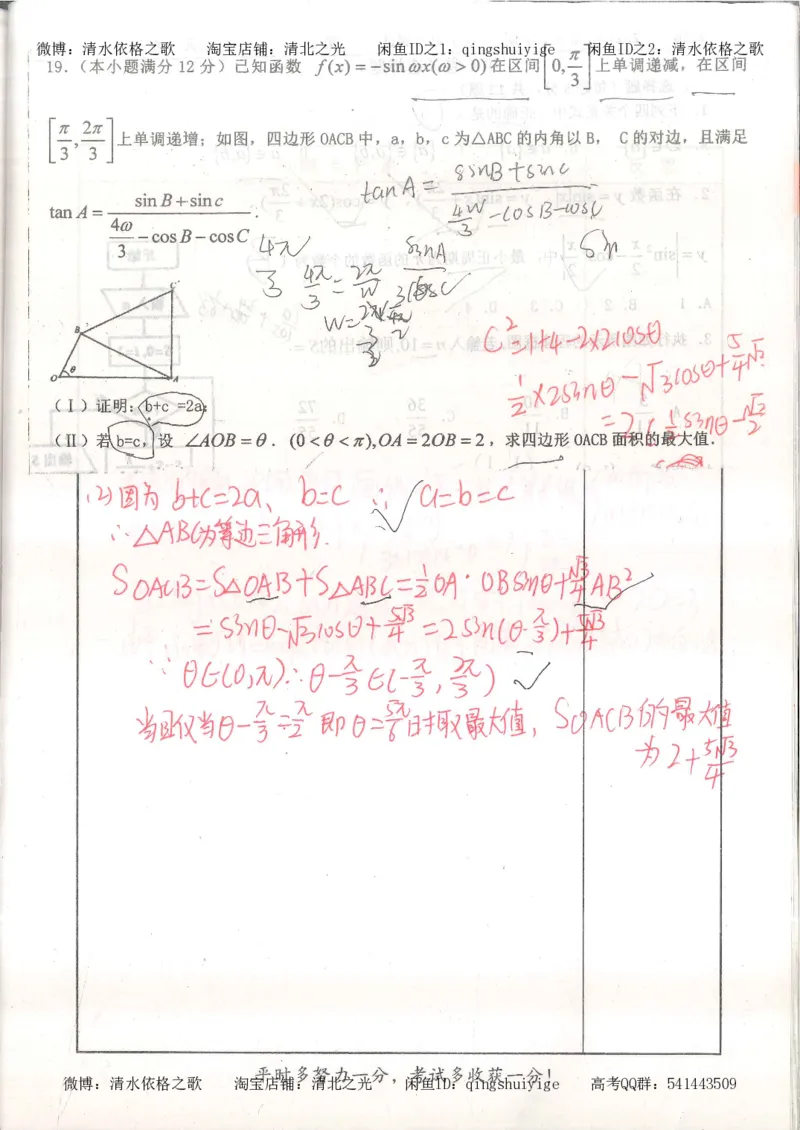 微博：清水依格之歌 淘宝店铺：清北之光 闲鱼ID之1：qingshuiyige 闲鱼ID之2：清水依格之歌
19.（本小题满分 12 分）已知函数 f(x)=-sinωx(ω>0)在区间[0, π/3]上单调递减，在区间
[π/3, 2π/3]上单调递增；如图，四边形 OACB 中，a，b，c 为△ABC 的内角以 B， C 的对边，且满足
tan A = (sinB+sinc)/(4w/3-cosB-cosC)
tan A = (sin B+sin c)/(4ω/3-cosB-cosC).
4π/3
4π/3=2π/w
sinA
Sin
C
B
O θ A
C²=1+4-2×2cosθ
1/2×2sinθ-√3cosθ+5/4√3
（Ⅰ）证明：b+c =2a；
（Ⅱ）若 b=c，设 ∠AOB=θ．(0<θ<π),OA=2OB=2，求四边形 OACB 面积的最大值．
(2)因为 b+c=2a、b=c ∴ a=b=c
∴△ABC为等边三角形.
SOACB=S△OAB+S△ABC=1/2OA·OBsinθ+√3/4AB²
=sinθ-√3cosθ+5√3/4=2sin(θ-π/3)+5√3/4
∵θ∈(0,π)∴θ-π/3∈(-π/3, 2π/3)
当且仅当θ-π/3=π/2即θ=5π/6时取最大值，SOACB的最大值
为2+5√3/4
平时多努力一分，考试多收获一分！
微博：清水依格之歌 淘宝店铺：清北之光 闲鱼ID：qingshuiyige 高考QQ群：541443509